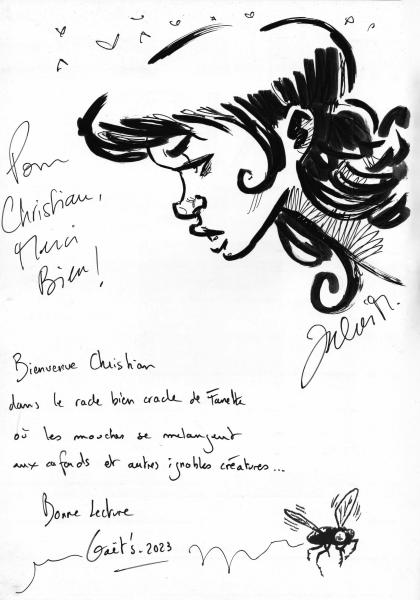 Pour
Christian,
Merci
Bien!
Julien M.
Bienvenue Christian
dans le rade bien crade de Fanette
où les mouches se melangent
aux cafards et autres ignobles créatures...
Bonne Lecture
Gaët's. 2023